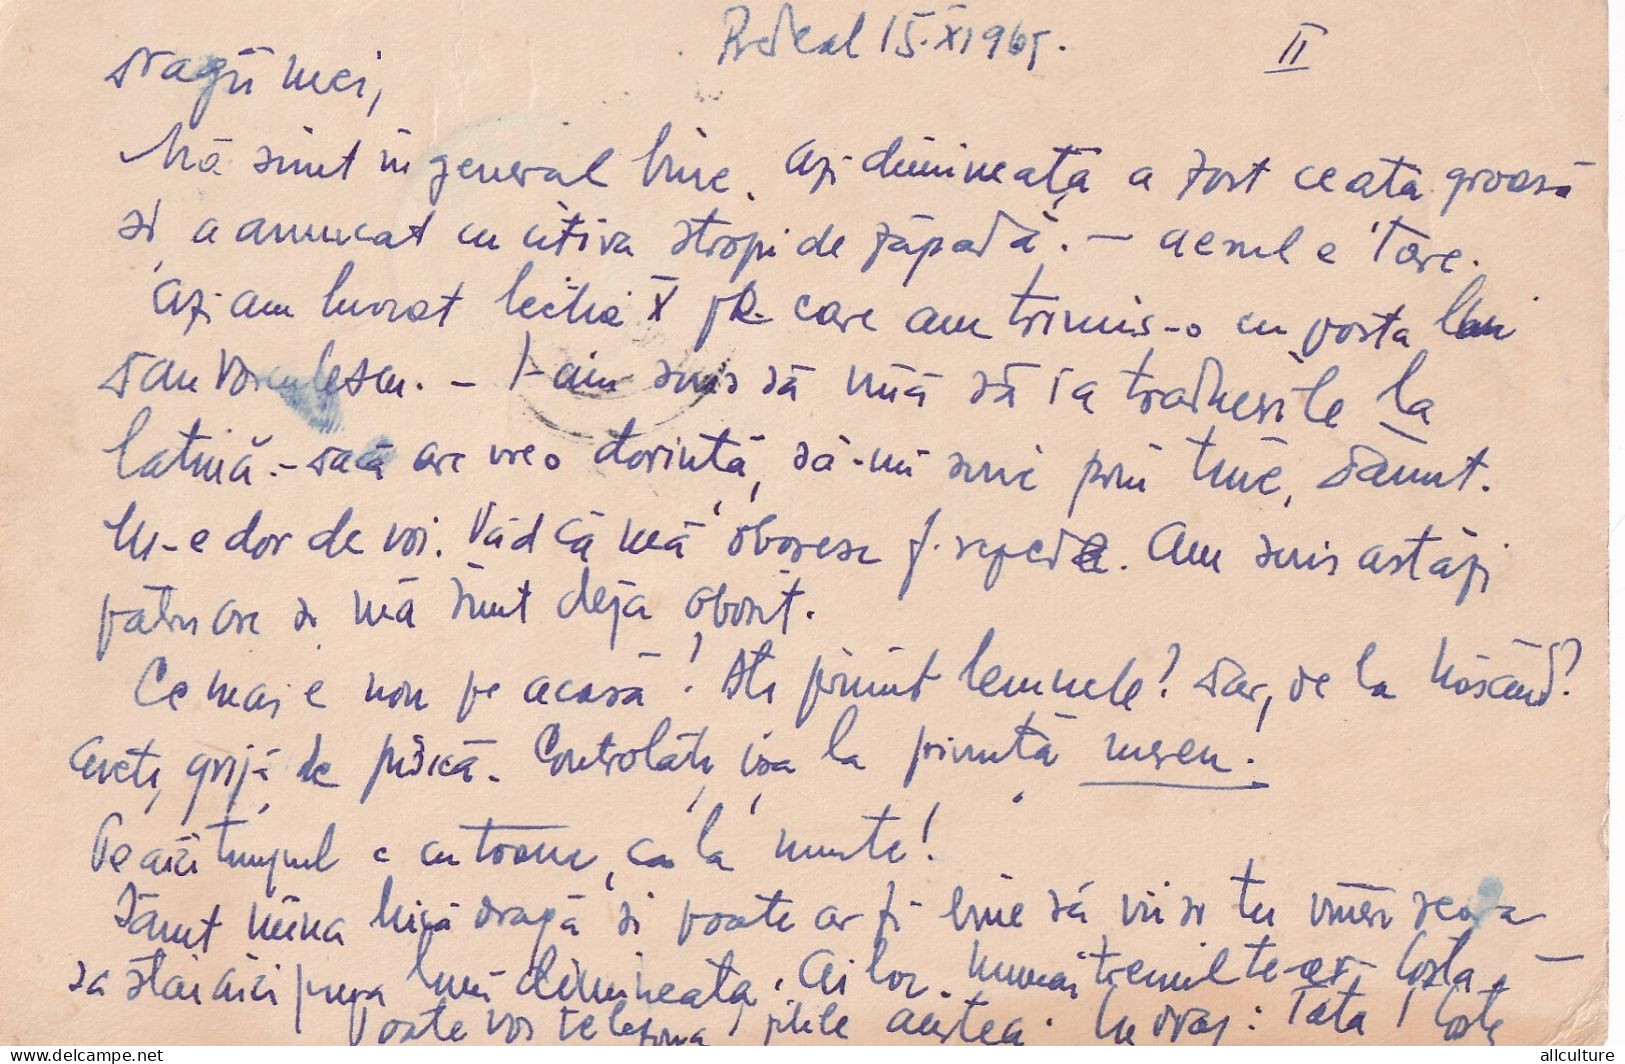 Predeal 15.XI 965.
II
Dragii mei,
Mă simt în general bine. Azi dimineață a fost ceață groasă
și a aruncat cu cîțiva stropi de zăpadă. — aerul e tare.
Azi am lucrat lecția X pe care am trimis-o cu poșta lui
Dan. — I-am scris să vină să ia traducerile la
latină. — Dacă are vreo dorință, să-mi scrie prin tine, Dănuț.
Mi-e dor de voi. Văd că mă obosesc f. repede. Am scris astăzi
patru ore și mă simt deja obosit.
Ce mai e nou pe acasă! Ați primit lemnele? Dar, de la
Aveți grijă de pisică. Controlați ușa la pivniță mereu.
Pe aici timpul e cu toane, ca la munte!
Dănuț mîna mică dragă și poate ar fi bine să vii și tu vineri seara
să stai aici pînă luni dimineața. Ai loc. Numai trenul te-ar costa. —
Poate voi telefona zilele acestea. Cu drag: Tata!
allculture